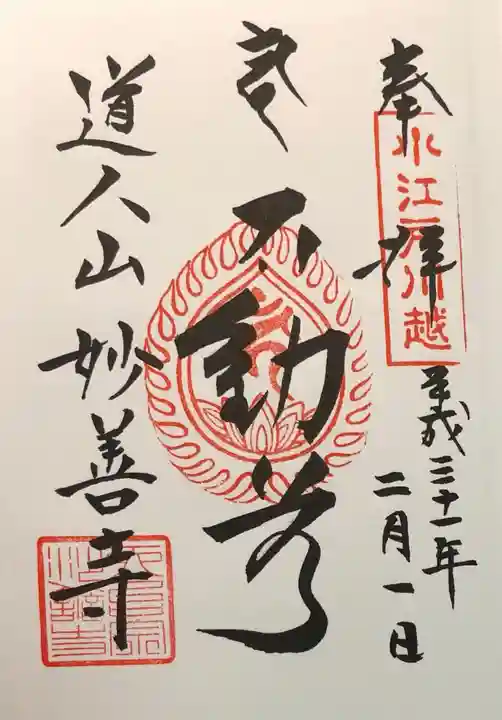 奉拝
小江戸川越
平成三十一年
二月一日
不動尊
道人山 妙善寺